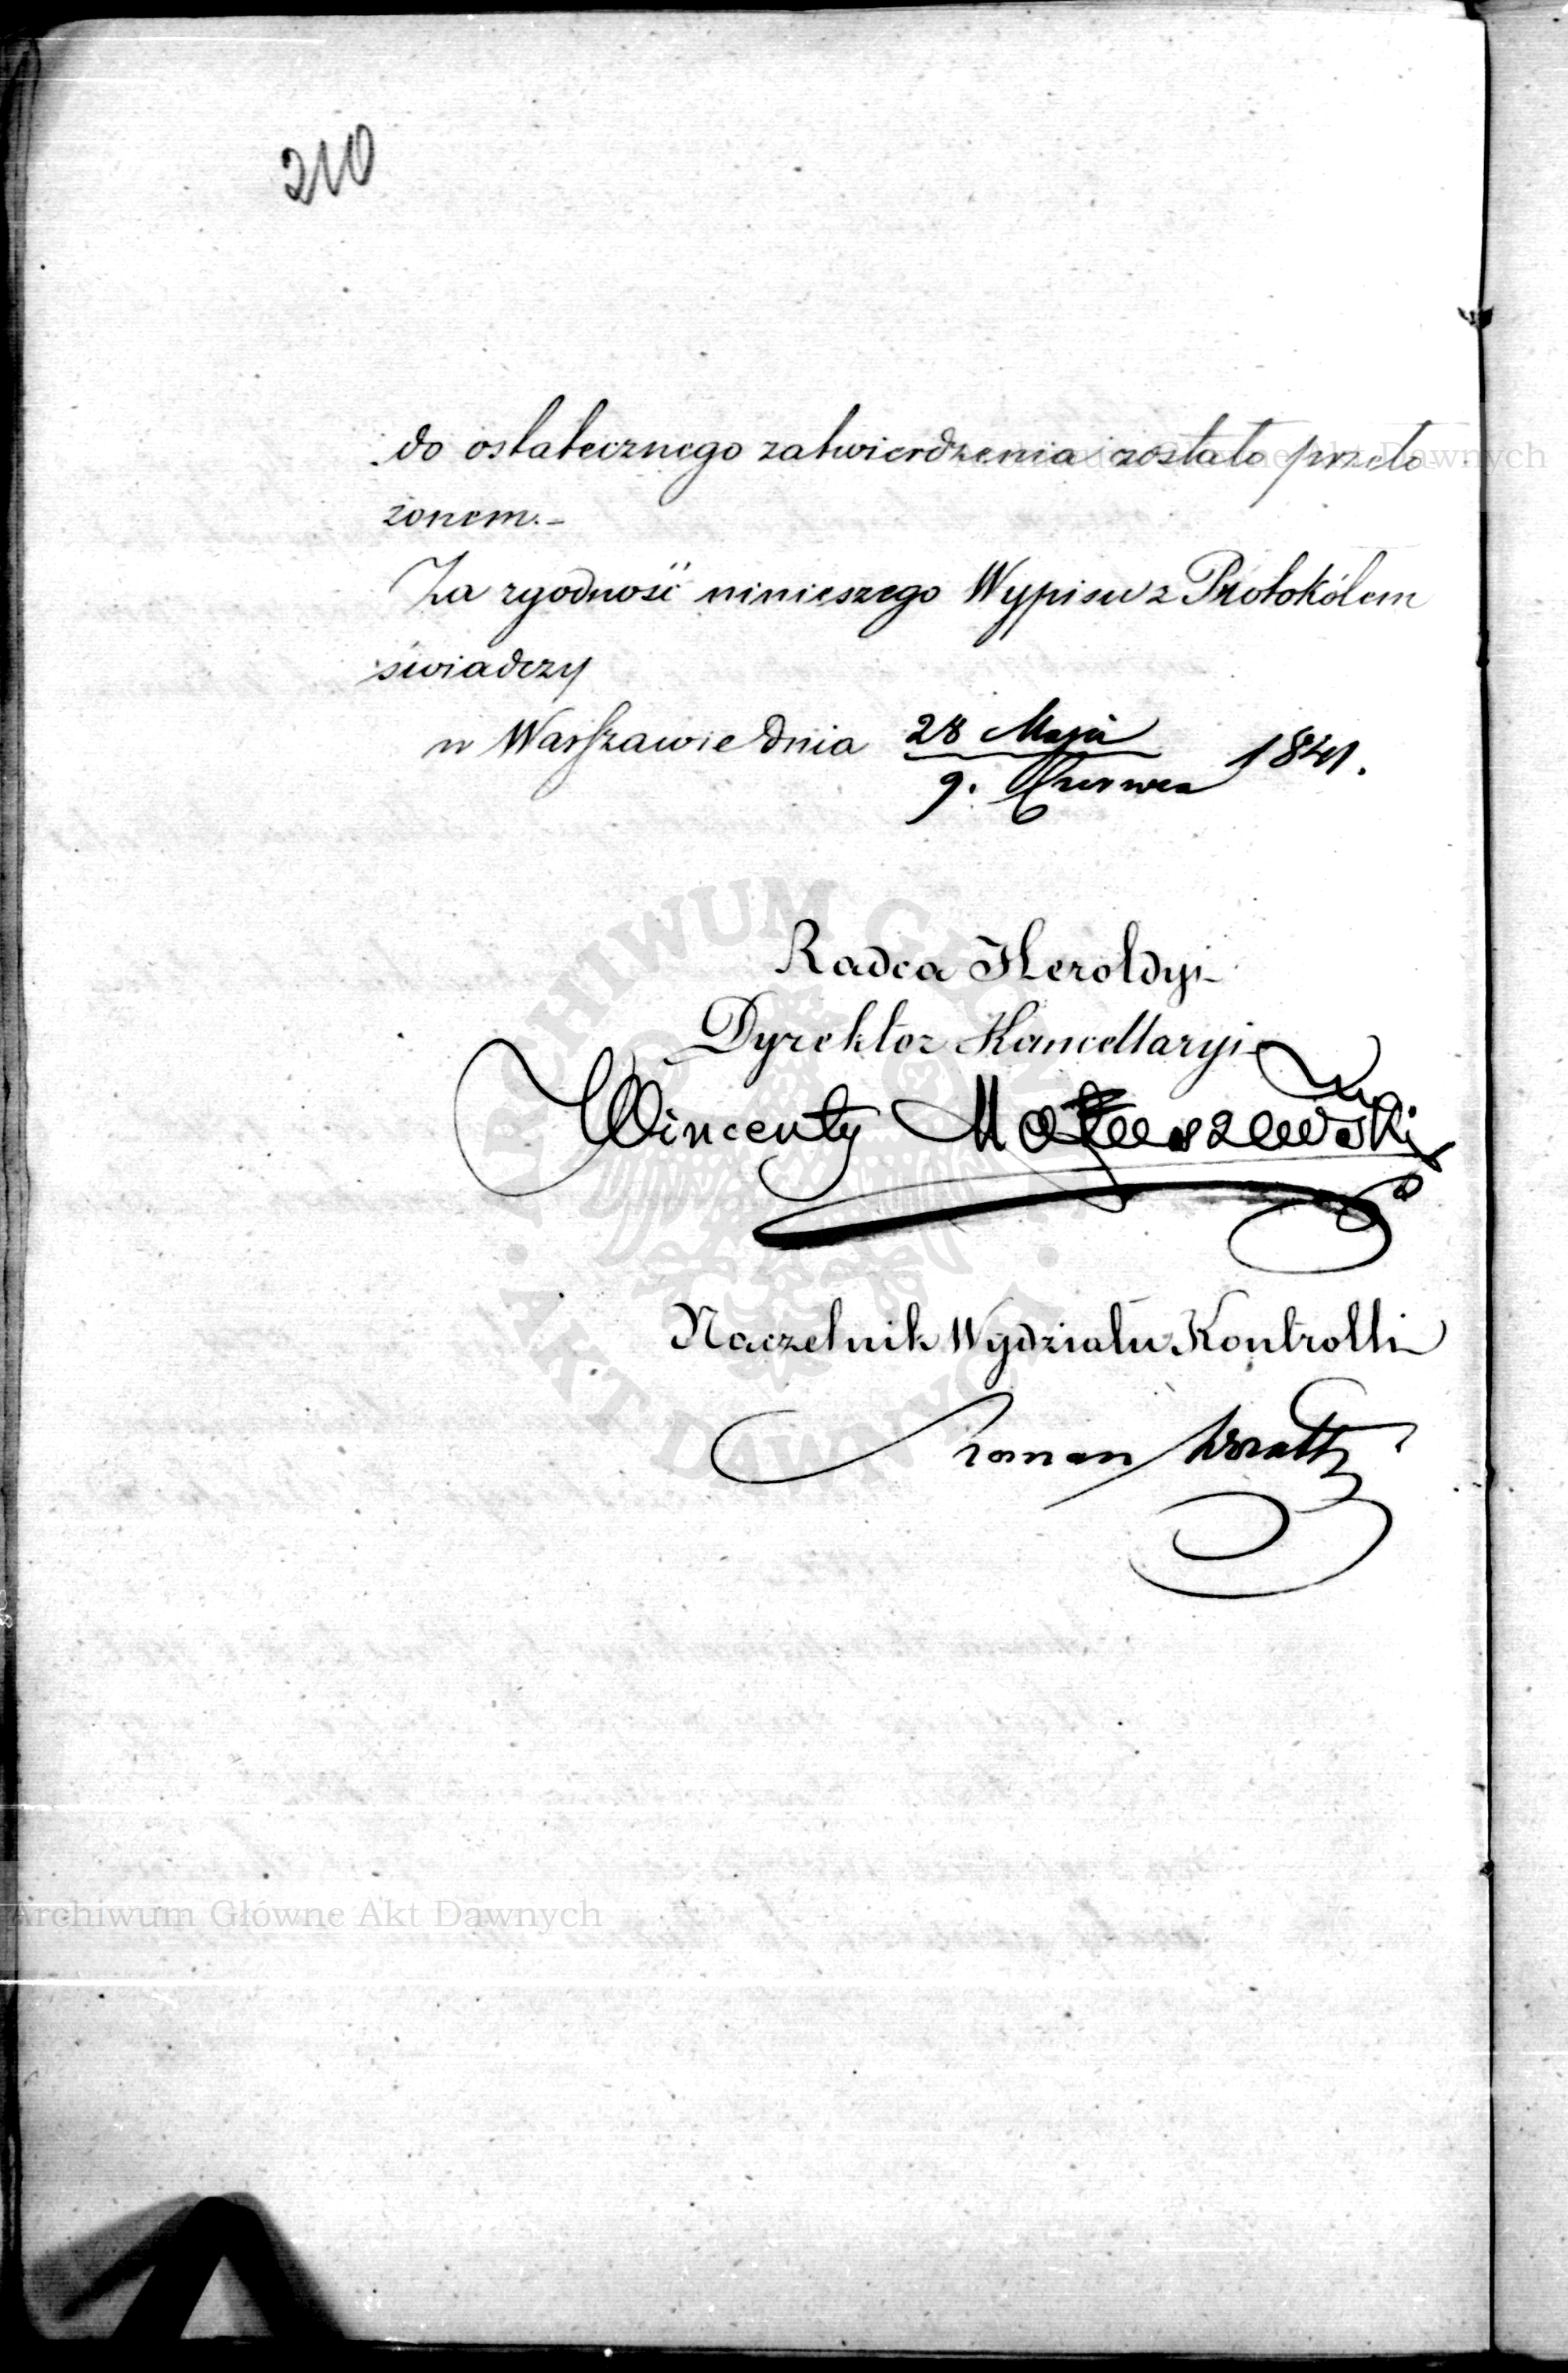 210
do ostatecznego zatwierdzenia zostało przeło
żonem.-
Za zgodność ninieszego Wypisu z Protokółem
świadczy
w Warszawie dnia 28 Maja / 9. Czerwca 1841.
Radca Heroldyi
Dyrektor Kancellaryi
Wincenty Matuszewski
Naczelnik Wydziału Kontrolli
ARCHIWUM GŁÓWNE
AKT DAWNYCH
Archiwum Główne Akt Dawnych